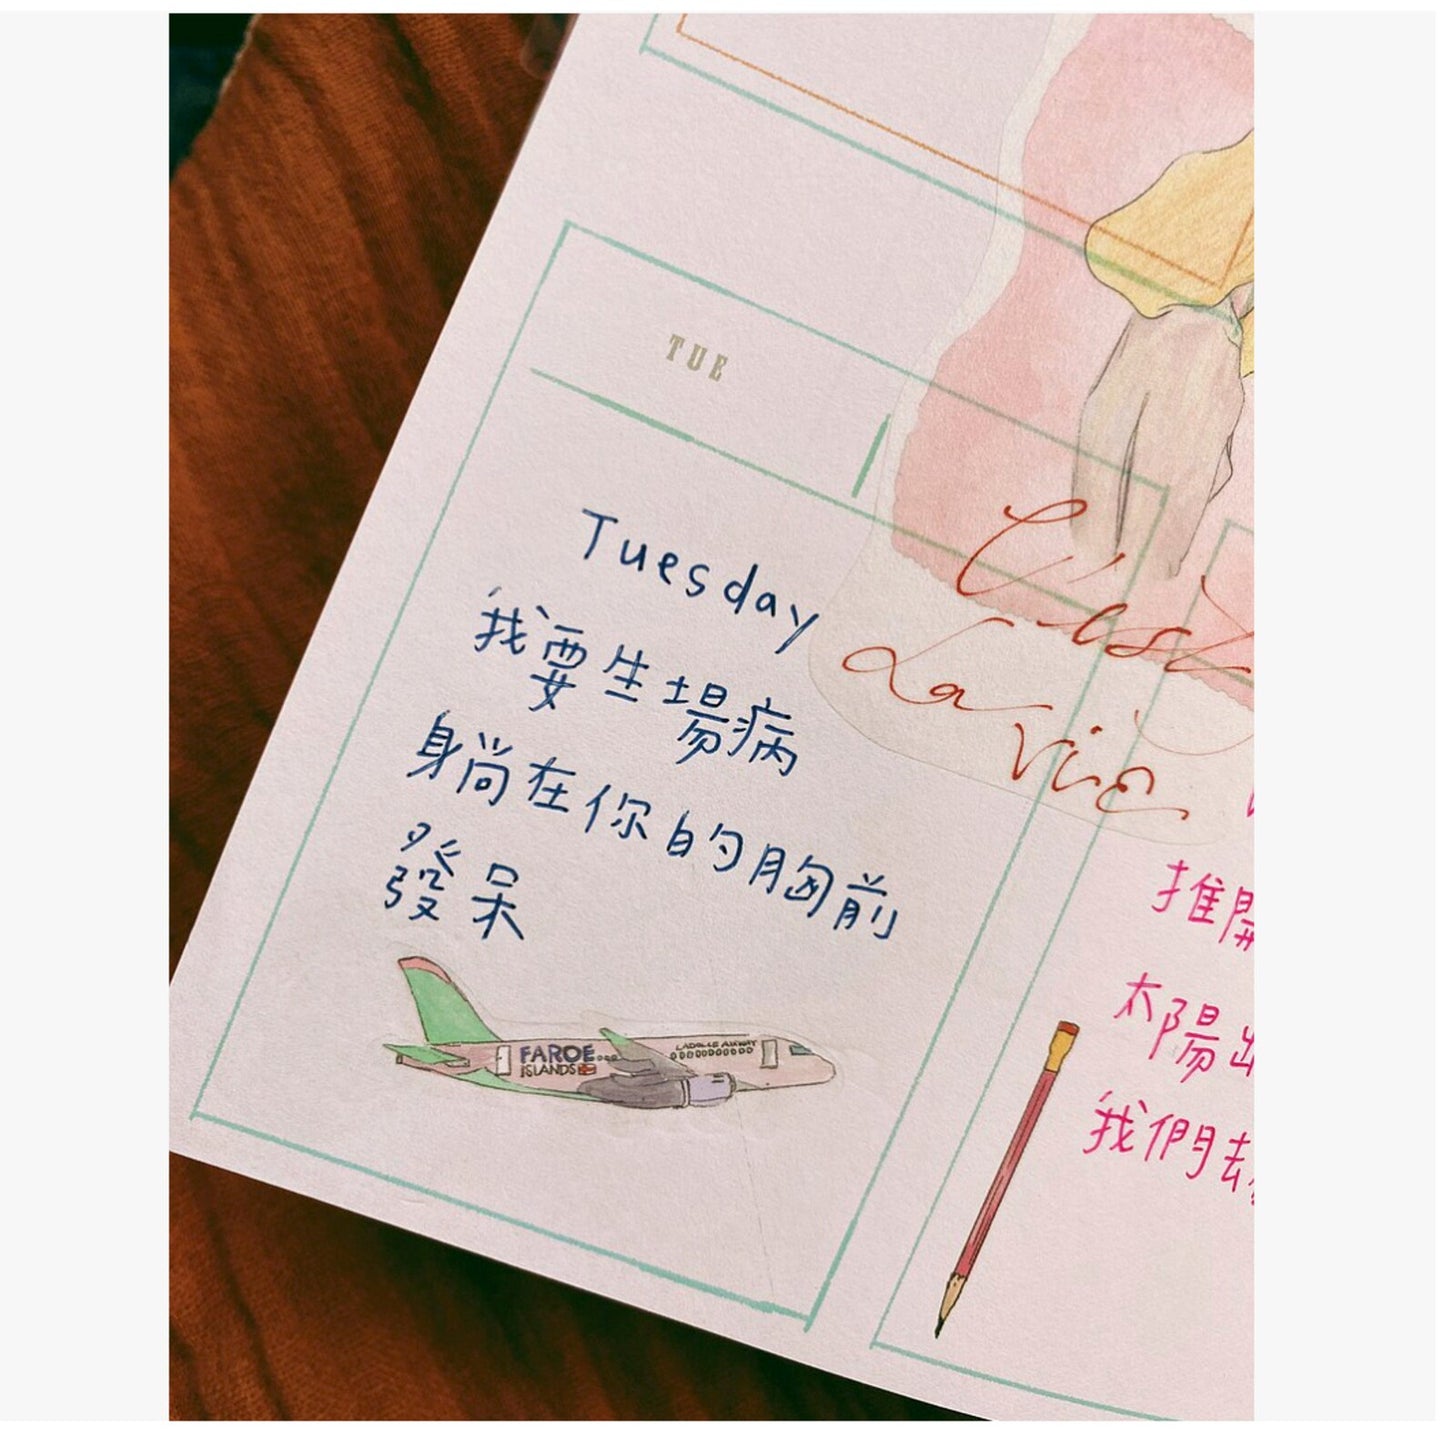 TUE
Tuesday
我要生場病
身尚在你的胸前
發呆
FAROE...
ISLANDS
LADELLE AIRWAY
C'est
La
vie
推開
太陽出
我們去